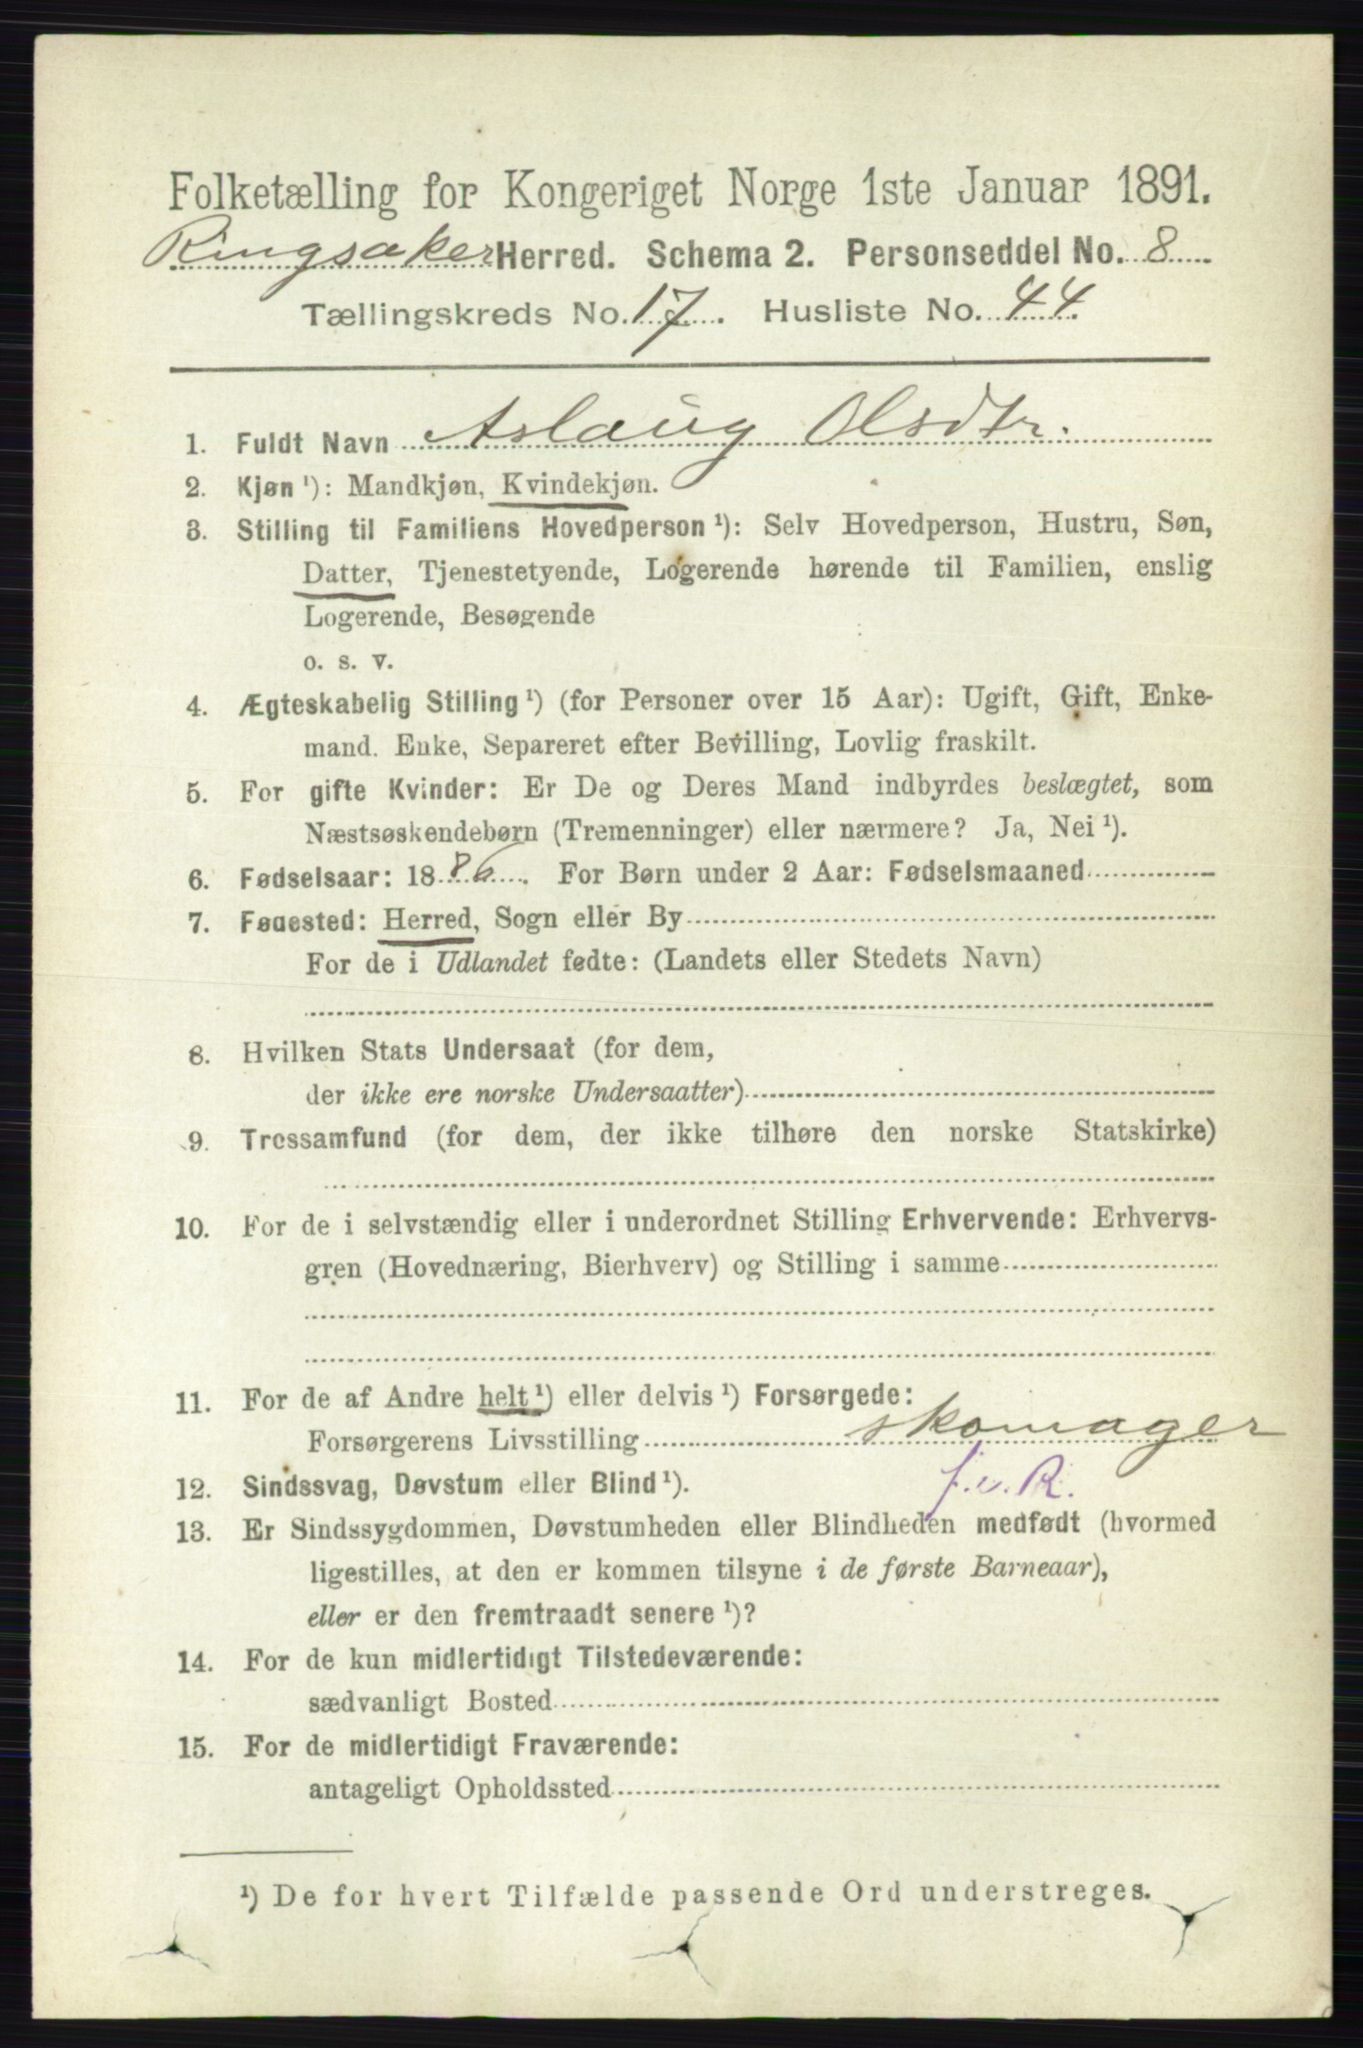 Folketælling for Kongeriget Norge 1ste Januar 1891.
Ringsaker Herred. Schema 2. Personseddel No. 8
Tællingskreds No. 17. Husliste No. 44.
1. Fuldt Navn Aslaug Olsdtr.
2. Kjøn ¹): Mandkjøn, Kvindekjøn.
3. Stilling til Familiens Hovedperson ¹): Selv Hovedperson, Hustru, Søn,
Datter, Tjenestetyende, Logerende hørende til Familien, enslig
Logerende, Besøgende
o. s. v.
4. Ægteskabelig Stilling ¹) (for Personer over 15 Aar): Ugift, Gift, Enke-
mand. Enke, Separeret efter Bevilling, Lovlig fraskilt.
5. For gifte Kvinder: Er De og Deres Mand indbyrdes beslægtet, som
Næstsøskendebørn (Tremenninger) eller nærmere? Ja, Nei ¹).
6. Fødselsaar: 1886. For Børn under 2 Aar: Fødselsmaaned
7. Fødested: Herred, Sogn eller By
For de i Udlandet fødte: (Landets eller Stedets Navn)
8. Hvilken Stats Undersaat (for dem,
der ikke ere norske Undersaatter)
9. Trossamfund (for dem, der ikke tilhøre den norske Statskirke)
10. For de i selvstændig eller i underordnet Stilling Erhvervende: Erhvervs-
gren (Hovednæring, Bierhverv) og Stilling i samme
11. For de af Andre helt ¹) eller delvis ¹) Forsørgede:
Forsørgerens Livsstilling skomager
f.v.R.
12. Sindssvag, Døvstum eller Blind ¹).
13. Er Sindssygdommen, Døvstumheden eller Blindheden medfødt (hvormed
ligestilles, at den er kommen tilsyne i de første Barneaar),
eller er den fremtraadt senere ¹)?
14. For de kun midlertidigt Tilstedeværende:
sædvanligt Bosted
15. For de midlertidigt Fraværende:
antageligt Opholdssted
¹) De for hvert Tilfælde passende Ord understreges.